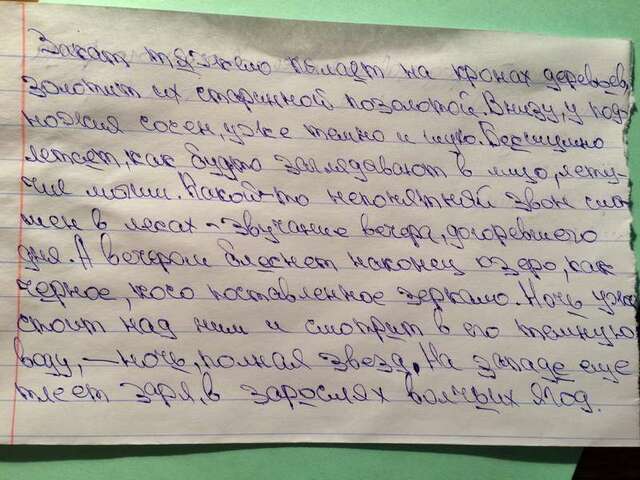 Закат тяжело пылает на кронах деревьев,
золотит их старинной позолотой. Внизу, у под-
ножия сосен, уже темно и глухо. Бесшумно
летают, как будто заглядывают в лицо, лету-
чие мыши. Какой-то непонятный звон слы-
шен в лесах - звучание вечера, догоревшего
дня. А вечером блеснет наконец озеро, как
черное, косо поставленное зеркало. Ночь уже
стоит над ним и смотрит в его темную
воду, – ночь, полная звезд. На западе еще
тлеет заря, в зарослях волчьих ягод.